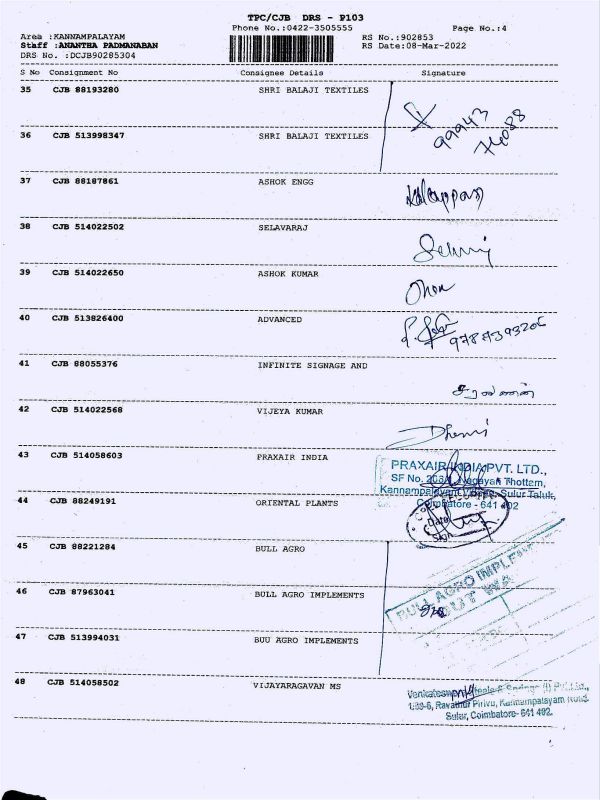 TPC/CJB DRS - P103
Phone No.:0422-3505555
Page No.:4
Area :KANNAMPALAYAM
RS No.:902853
Staff :ANANTHA PADMANABAN
RS Date:08-Mar-2022
DRS No. :DCJB90285304
S No Consignment No Consignee Details Signature
35 CJB 88193280 SHRI BALAJI TEXTILES
99943
74088
36 CJB 513998347 SHRI BALAJI TEXTILES
37 CJB 88187861 ASHOK ENGG
38 CJB 514022502 SELAVARAJ
39 CJB 514022650 ASHOK KUMAR
40 CJB 513826400 ADVANCED
41 CJB 88055376 INFINITE SIGNAGE AND
சரவணன்
42 CJB 514022568 VIJEYA KUMAR
43 CJB 514058603 PRAXAIR INDIA
PRAXAIR INDIA PVT. LTD.,
SF No. Thottam,
Kannampalayam Sulur Taluk,
Coimbatore - 641 402
44 CJB 88249191 ORIENTAL PLANTS
Date
Sign
45 CJB 88221284 BULL AGRO
46 CJB 87963041 BULL AGRO IMPLEMENTS
BULL AGRO
47 CJB 513994031 BUU AGRO IMPLEMENTS
48 CJB 514058502 VIJAYARAGAVAN MS
Ravathur Pirivu, Kannampalayam Road,
Sulur, Coimbatore- 641 402.